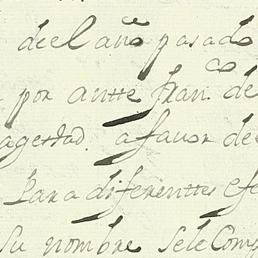 deel año pasado
por antte Fran.co de
agestad. afavor de
Para diferenttes efe
Su nombre sele Comp